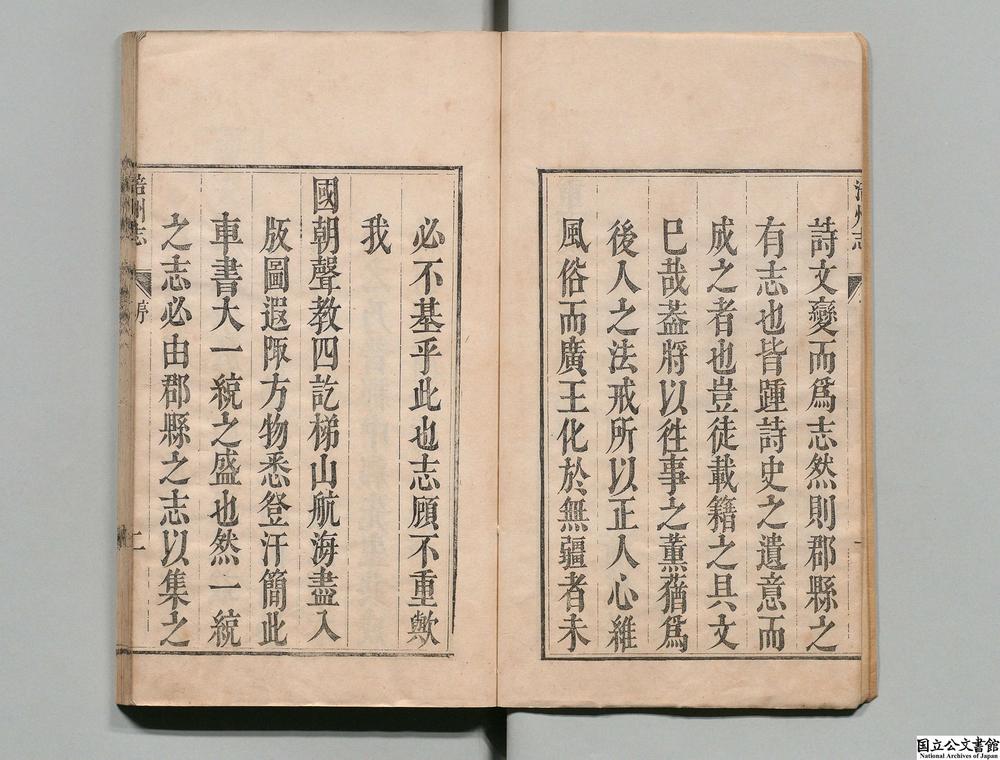 詩文變而爲志然則郡縣之
有志也皆踵詩史之遺意而
成之者也豈徒載籍之具文
巳哉葢將以徃事之薰蕕爲
後人之法戒所以正人心維
風俗而廣王化於無疆者未
必不基乎此也志顧不重歟
我
國朝聲教四訖梯山航海盡入
版圖遐陬方物悉登汗簡此
車書大一統之盛也然一統
之志必由郡縣之志以集之
涪州志
序
二
国立公文書館
National Archives of Japan